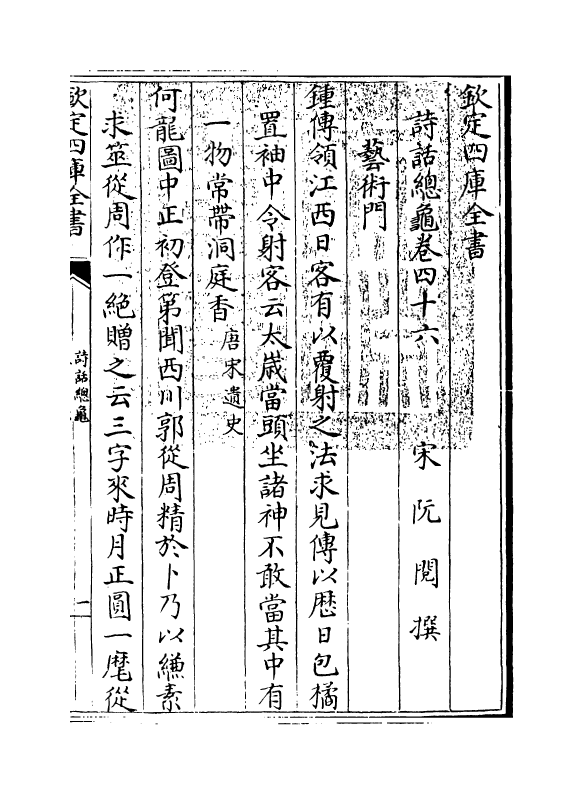 欽定四庫全書
詩話總龜卷四十六　宋　阮閱　撰
藝術門
鍾傳領江西日客有以覆射之法求見傳以厯日包橘
置袖中令射客云太歲當頭坐諸神不敢當其中有
一物常帶洞庭香唐宋遺史
何龍圖中正初登第聞西川郭從周精於卜乃以縑素
求筮從周作一絶贈之云三字來時月正圓一麾從
欽定四庫全書
詩話總龜
一